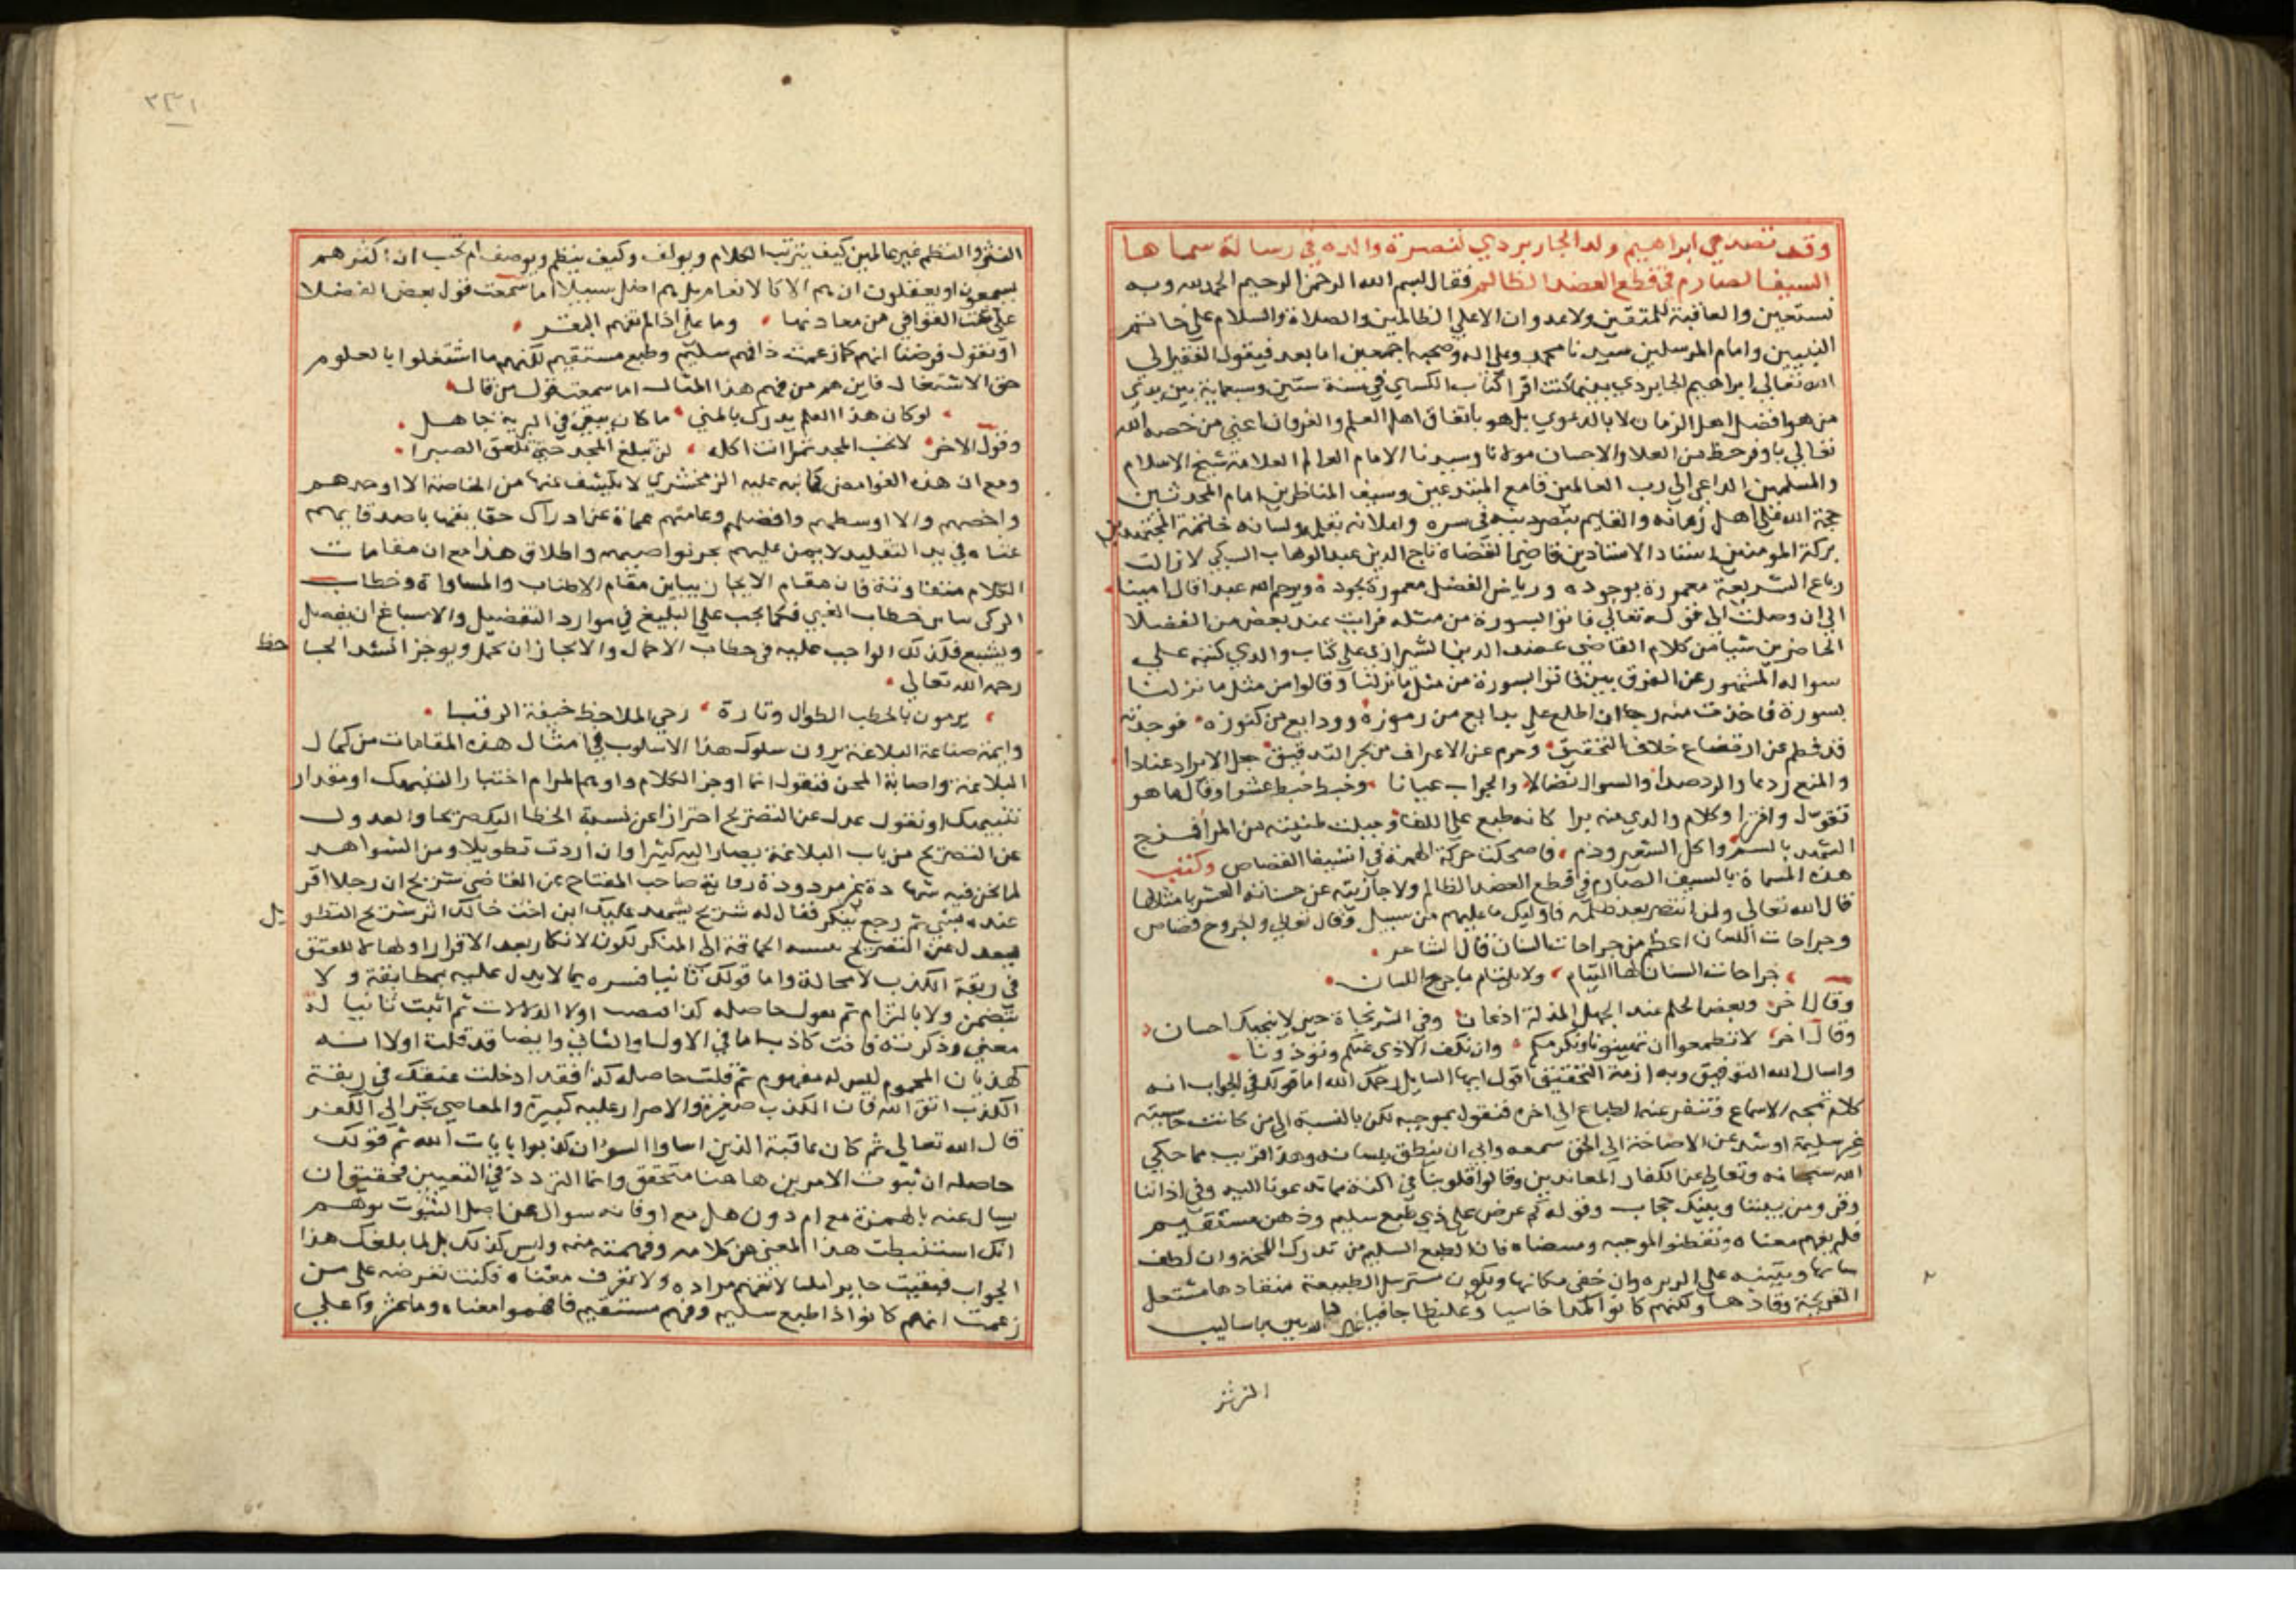 وقد تصدي ابراهيم ولد الجاربردي لنصرة والده في رسالة سماها
السيف الصارم في قطع العضد الظالم فقال بسم الله الرحمن الرحيم الحمد لله وبه
نستعين والعاقبة للمتقين ولا عدوان الا علي الظالمين والصلاة والسلام علي خاتم
النبيين وامام المرسلين سيدنا محمد وعلي اله وصحبه اجمعين اما بعد فيقول الفقير الي
الله تعالي ابراهيم الجاربردي بينما كنت اقرا كتاب الكشاف في سنة ستين وسبعماية بين يدي
من هو افضل اهل الزمان لا بالدعوي بل هو باتفاق اهل العلم والعرفان اعني من خصه الله
تعالي باوفر حظ من العلا والاحسان مولانا وسيدنا الامام العالم العلامة شيخ الاسلام
والمسلمين الداعي الي رب العالمين قامع المبتدعين وسيف المناظرين امام المحدثين
حجة الله علي اهل زمانه والقايم بنصر دينه في سره واعلانه بقلمه ولسانه خاتمة المجتهدين
بركة المومنين استاد الاستادين قاضي القضاه تاج الدين عبد الوهاب السبكي لا زالت
رباع الشريعة معمورة بوجوده ورياض الفضل مغمورة بجوده ويرحم الله عبدا قال امينا
الي ان وصلت الي قوله تعالي فاتوا بسورة من مثله فرايت عند بعض من الفضلا
الحاضرين شيا من كلام القاضي عضد الدين الشيرازي علي كتاب والدي كتبه علي
سواله المشهور عن الفرق بين فاتوا بسورة من مثل ما نزلنا وقالوا من مثل ما نزلنا
بسورة فاخذت منه رجا ان اطلع علي بدايع من رموزه وودايع من كنوزه فوجدته
قد فطم عن ارتضاع خلاف التحقيق وحرم عن الاغتراف من بحر التدقيق جعل الايراد عنادا
والمنع ردعا والرد صدا والسوال نضالا والجواب عيابا وخبط خبط عشوا وقال ما هو
تقول وافترا وكلام والدي منه برا كانه طبع علي اللغا وجبلت طينته من المرا فمزج
الشهد بالسم واكل الشعير وذم فاضحكت حركة الهمزة في استيفا القصاص وكتبت
هذه المسماة بالسيف الصارم في قطع العضد الظالم ولا جازيته عن حسناته العشر بامثالها
قال الله تعالي ولمن انتصر بعد ظلمه فاوليك ما عليهم من سبيل وقال تعالي والجروح قصاص
وجراحات اللسان اعظم من جراحات السنان قال الشاعر
جراحات السنان لها التيام ولا يلتام ما جرح اللسان
وقال اخر وبعض الحلم عند الجهل للذلة اذعان وفي الشر نجاة حين لا ينجيك احسان
وقال اخر لا تطمعوا ان تهينونا ونكرمكم وان نكف الاذي عنكم وتوذونا
واسال الله التوفيق وبه ازمة التحقيق اقول ايها السايل رحمك الله اما قولك في الجواب انه
كلام تمجه الاسماع وتنفر عنه الطباع الي اخره فنقول بموجبه لكن بالنسبة الي من كانت حاسيته
غير سليمة او سد عن الاصاخة الي الحق سمعه وابي ان ينطق به لسانه وهذا قريب مما حكي
الله سبحانه وتعالي عن الكفار المعاندين وقالوا قلوبنا في اكنة مما تدعونا اليه وفي اذاننا
وقر ومن بيننا وبينك حجاب وقوله كم عرض علي ذي طبع سليم وذهن مستقيم
فلم يفهم معناه فان الطبع السليم من تدرك اللمحة وان لطف
شانها ويتنبه علي الرمزه وان خفي مكانها ويكون مسترسل الطبيعة منقادها مشتعل
القريحة وقادها ولكنهم كانوا كزا جاسيا وغليظا جافيا غير دارين باساليب
النثر
النثر والنظم غير عالمين كيف يترتب الكلام ويولف وكيف ينظم ويرصف ام تحسب ان اكثرهم
يسمعون او يعقلون ان هم الا كالانعام بل هم اضل سبيلا اما سمعت قول بعض الفضلا
علي نحت القوافي من معادنها وما علي اذا لم تفهم البقر
او نقول فرضنا انهم كما زعمت ذا فهم سليم وطبع مستقيم لكنهم ما اشتغلوا بالعلوم
حق الاشتغال فاين هم من فهم هذا المقال اما سمعت قول من قال
لو كان هذا العلم يدرك بالمني ما كان يبقي في البرية جاهل
وقول الاخر لا تحسب المجد تمرا انت اكله لن تبلغ المجد حتي تلعق الصبرا
ومع ان هذه الغوامض كما نبه عليه الزمخشري لا يكشف عنها من الخاصة الا اوحدهم
واخصهم والا اوسطهم وافضلهم وعامتهم عماة عن ادراك حقايقها باحداقهم
عناة في يد التقليد لا يمن عليهم بجز نواصيهم واطلاق هذا مع ان مقامات
الكلام متفاوتة فان مقام الايجاز يباين مقام الاطناب والمساواة وخطاب
الذكي يباين خطاب الغبي فكما يجب علي البليغ في موارد التفصيل والاسباغ ان يفصل
ويشبع فكذلك الواجب عليه في خطاب الاجمال والايجاز ان يجمل ويوجز انشد الجاحظ
رحمه الله تعالي
يرمون بالخطب الطوال وتارة وحي الملاحظ خيفة الرقبا
وايمة صناعة البلاغة يرون سلوك هذا الاسلوب في امثال هذه المقامات من كمال
البلاغة واصابة المحز فنقول انما اوجز الكلام واوهم المرام اختبارا لتنبهك او مقدار
تنبيهك او نقول عدل عن التصريح احترازا عن نسبة الخطا اليك صريحا والعدول
عن التصريح من باب البلاغة يصار اليه كثيرا وان اردت تطويلا ومن الشواهد
لما نحن فيه شهادة غير مردودة رواية صاحب المفتاح عن القاضي شريح ان رجلا اقر
عنده بشي ثم رجع ينكر فقال له شريح شهد عليك ابن اخت خالتك اثر شريح التطويل
ليعدل عن التصريح بنسبة الحماقة الي المنكر لكون الانكار بعد الاقرار ادخالا للعنق
في ربقة الكذب لا محالة واما قولك ثانيا فسره بما لا يدل عليه بمطابقة ولا
بتضمن ولا بالتزام ثم نقول حاصله كذا نفيت اولا الدلالات ثم اثبت ثانيا له
معني وذكرته فانت كاذب اما في الاول او الثاني وايضا قد قلت اولا انه
كهذيان المحموم ليس له مفهوم ثم قلت حاصله كذا فقد ادخلت عنقك في ربقة
الكذب اتق الله فان الكذب صغيرة والاصرار عليه كبيرة والمعاصي تجر الي الكفر
قال الله تعالي ثم كان عاقبة الذين اساوا السواي ان كذبوا بايات الله ثم قولك
حاصله ان ثبوت الامرين هاهنا متحقق وانما التردد في التعيين فحقيق ان
يسال عنه بالهمزة مع ام دون هل مع او فانه سوال عن اصل الثبوت يوهم
انك استنبطت هذا المعني من كلامه وفهمته منه وليس كذلك بل لما بلغك هذا
الجواب فبقيت حايرا مليا لا تفهم مراده ولا تعرف معناه فكنت تعرضه علي من
زعمت انهم كانوا ذا طبع سليم وفهم مستقيم فافهموا معناه وما عثروا علي